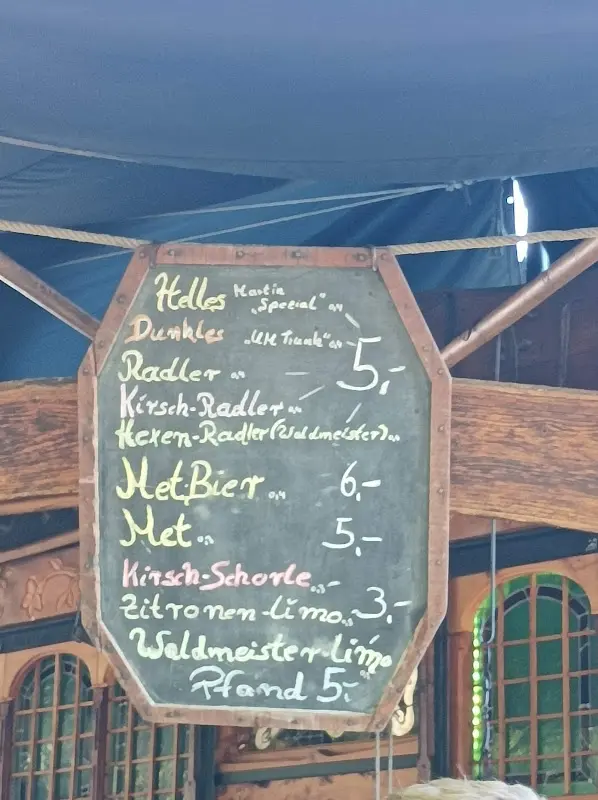 Helles Martin
„Spezial" 0,4
Dunkles 0,4
Radler 0,4 5,-
Kirsch-Radler 0,4
Hexen-Radler (Waldmeister) 0,4
Met.Bier 0,4 6,-
Met 5,-
Kirsch-Schorle 0,3
Zitronen-limo 3,-
Waldmeister-limo
Pfand 5,-